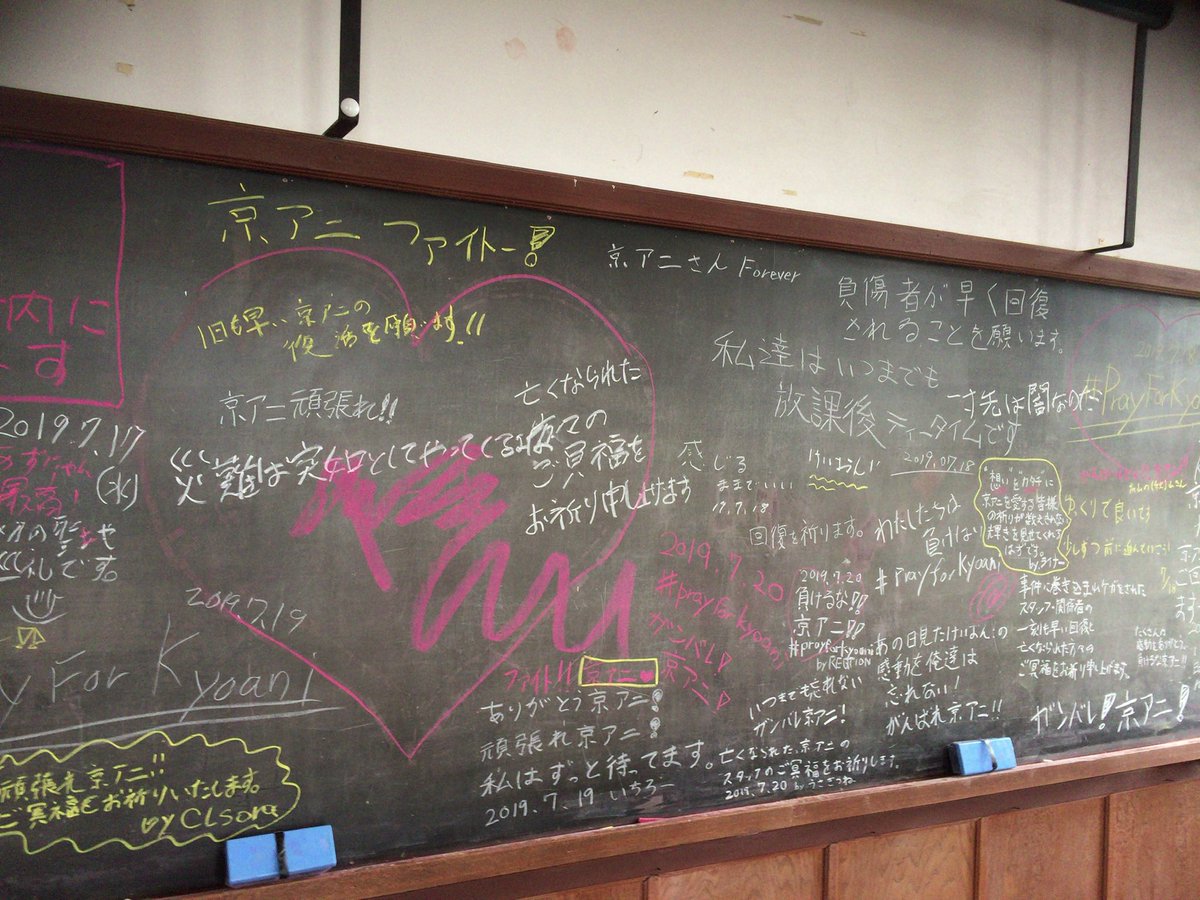 内に
す
2019.7.17
(水)
最高!
礼です。
2019.7.19
For Kyoani
頑張れ京アニ!!
ご冥福をお祈りいたします。
by CLSora
京アニ ファイトー!
1日も早い京アニの
復活を願います!!
京アニ頑張れ!!
災難は突如としてやってくる
亡くなられた
方々の
ご冥福を
お祈り申し上げます
ファイト!! 京アニ♥
ありがとう京アニ!
頑張れ京アニ!
私はずっと待ってます。
2019.7.19 いちろー
京アニさん Forever
負傷者が早く回復
されることを願います。
私達はいつまでも
放課後ティータイムです
一寸先は闇なのだ
感じる
ままでいい
17.7.18
けいおん!
2019.07.18
回復を祈ります。
わたしたちは
負けない
#Prayforkyoani
2019.7.20
#prayforkyoani
ガンバレ!
京アニ!
2019.7.20
負けるな!!
京アニ!!
#prayforkyoani
by REGTION
いつまでも忘れない
ガンバレ京アニ!
亡くなられた京アニの
スタッフのご冥福をお祈りします。
2019.7.20 by うさぎうね
あの日見たけいおん!の
感動を俺達は
忘れない!
がんばれ京アニ!!
"想い"をカタチに
京アニを愛する皆様
の祈りが数えきれない
輝きを見せてくれる
はずです。
by ライナー
#PrayForKy
ゆっくりで良いです
少しずつ前に進んでいこう!
事件に巻き込まれケガをされた
スタッフ・関係者の
一刻も早い回復と
亡くなられた方々の
ご冥福をお祈り申し上げます。
たくさんの
感動をありがとう。
負けるな京アニ!!
ガンバレ!京アニ!